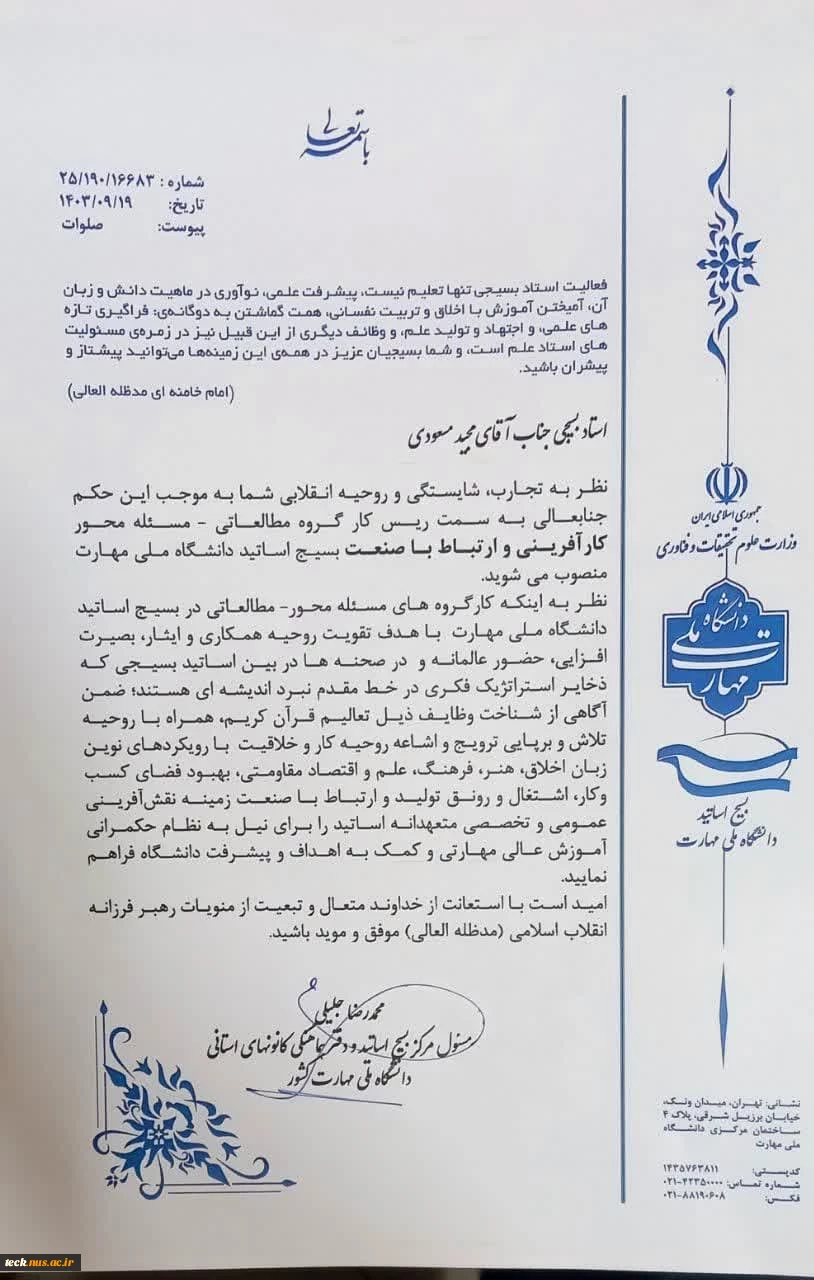 باسمه تعالی
شماره : ۲۵/۱۹۰/۱۶۶۸۳
تاریخ: ۱۴۰۳/۰۹/۱۹
پیوست: صلوات
فعالیت استاد بسیجی تنها تعلیم نیست، پیشرفت علمی، نوآوری در ماهیت دانش و زبان
آن، آمیختن آموزش با اخلاق و تربیت نفسانی، همت گماشتن به دوگانه‌ی: فراگیری تازه
های علمی، و اجتهاد و تولید علم، و وظائف دیگری از این قبیل نیز در زمره‌ی مسئولیت
های استاد علم است، و شما بسیجیان عزیز در همه‌ی این زمینه‌ها می‌توانید پیشتاز و
پیشران باشید.
(امام خامنه ای مدظله العالی)
استاد بسیجی جناب آقای مجید مسعودی
نظر به تجارب، شایستگی و روحیه انقلابی شما به موجب این حکم
جنابعالی به سمت ریس کار گروه مطالعاتی - مسئله محور
کارآفرینی و ارتباط با صنعت بسیج اساتید دانشگاه ملی مهارت
منصوب می شوید.
نظر به اینکه کارگروه های مسئله محور- مطالعاتی در بسیج اساتید
دانشگاه ملی مهارت با هدف تقویت روحیه همکاری و ایثار، بصیرت
افزایی، حضور عالمانه و در صحنه ها در بین اساتید بسیجی که
ذخایر استراتژیک فکری در خط مقدم نبرد اندیشه ای هستند؛ ضمن
آگاهی از شناخت وظایف ذیل تعالیم قرآن کریم، همراه با روحیه
تلاش و برپایی ترویج و اشاعه روحیه کار و خلاقیت با رویکردهای نوین
زبان اخلاق، هنر، فرهنگ، علم و اقتصاد مقاومتی، بهبود فضای کسب
وکار، اشتغال و رونق تولید و ارتباط با صنعت زمینه نقش‌آفرینی
عمومی و تخصصی متعهدانه اساتید را برای نیل به نظام حکمرانی
آموزش عالی مهارتی و کمک به اهداف و پیشرفت دانشگاه فراهم
نمایید.
امید است با استعانت از خداوند متعال و تبعیت از منویات رهبر فرزانه
انقلاب اسلامی (مدظله العالی) موفق و موید باشید.
محمدرضا جلیلی
مسئول مرکز بسیج اساتید و دفتر هماهنگی کانونهای استانی
دانشگاه ملی مهارت کشور
جمهوری اسلامی ایران
وزارت علوم تحقیقات و فناوری
دانشگاه
ملی
مهارت
بسیج اساتید
دانشگاه ملی مهارت
نشانی: تهران، میدان ونک،
خیابان برزیل شرقی، پلاک ۴
ساختمان مرکزی دانشگاه
ملی مهارت
کدپستی: ۱۴۳۵۷۶۳۸۱۱
شماره تماس: ۴۲۳۵۰۰۰۰-۰۲۱
فکس: ۸۸۱۹۰۶۰۸-۰۲۱
teck.nus.ac.ir